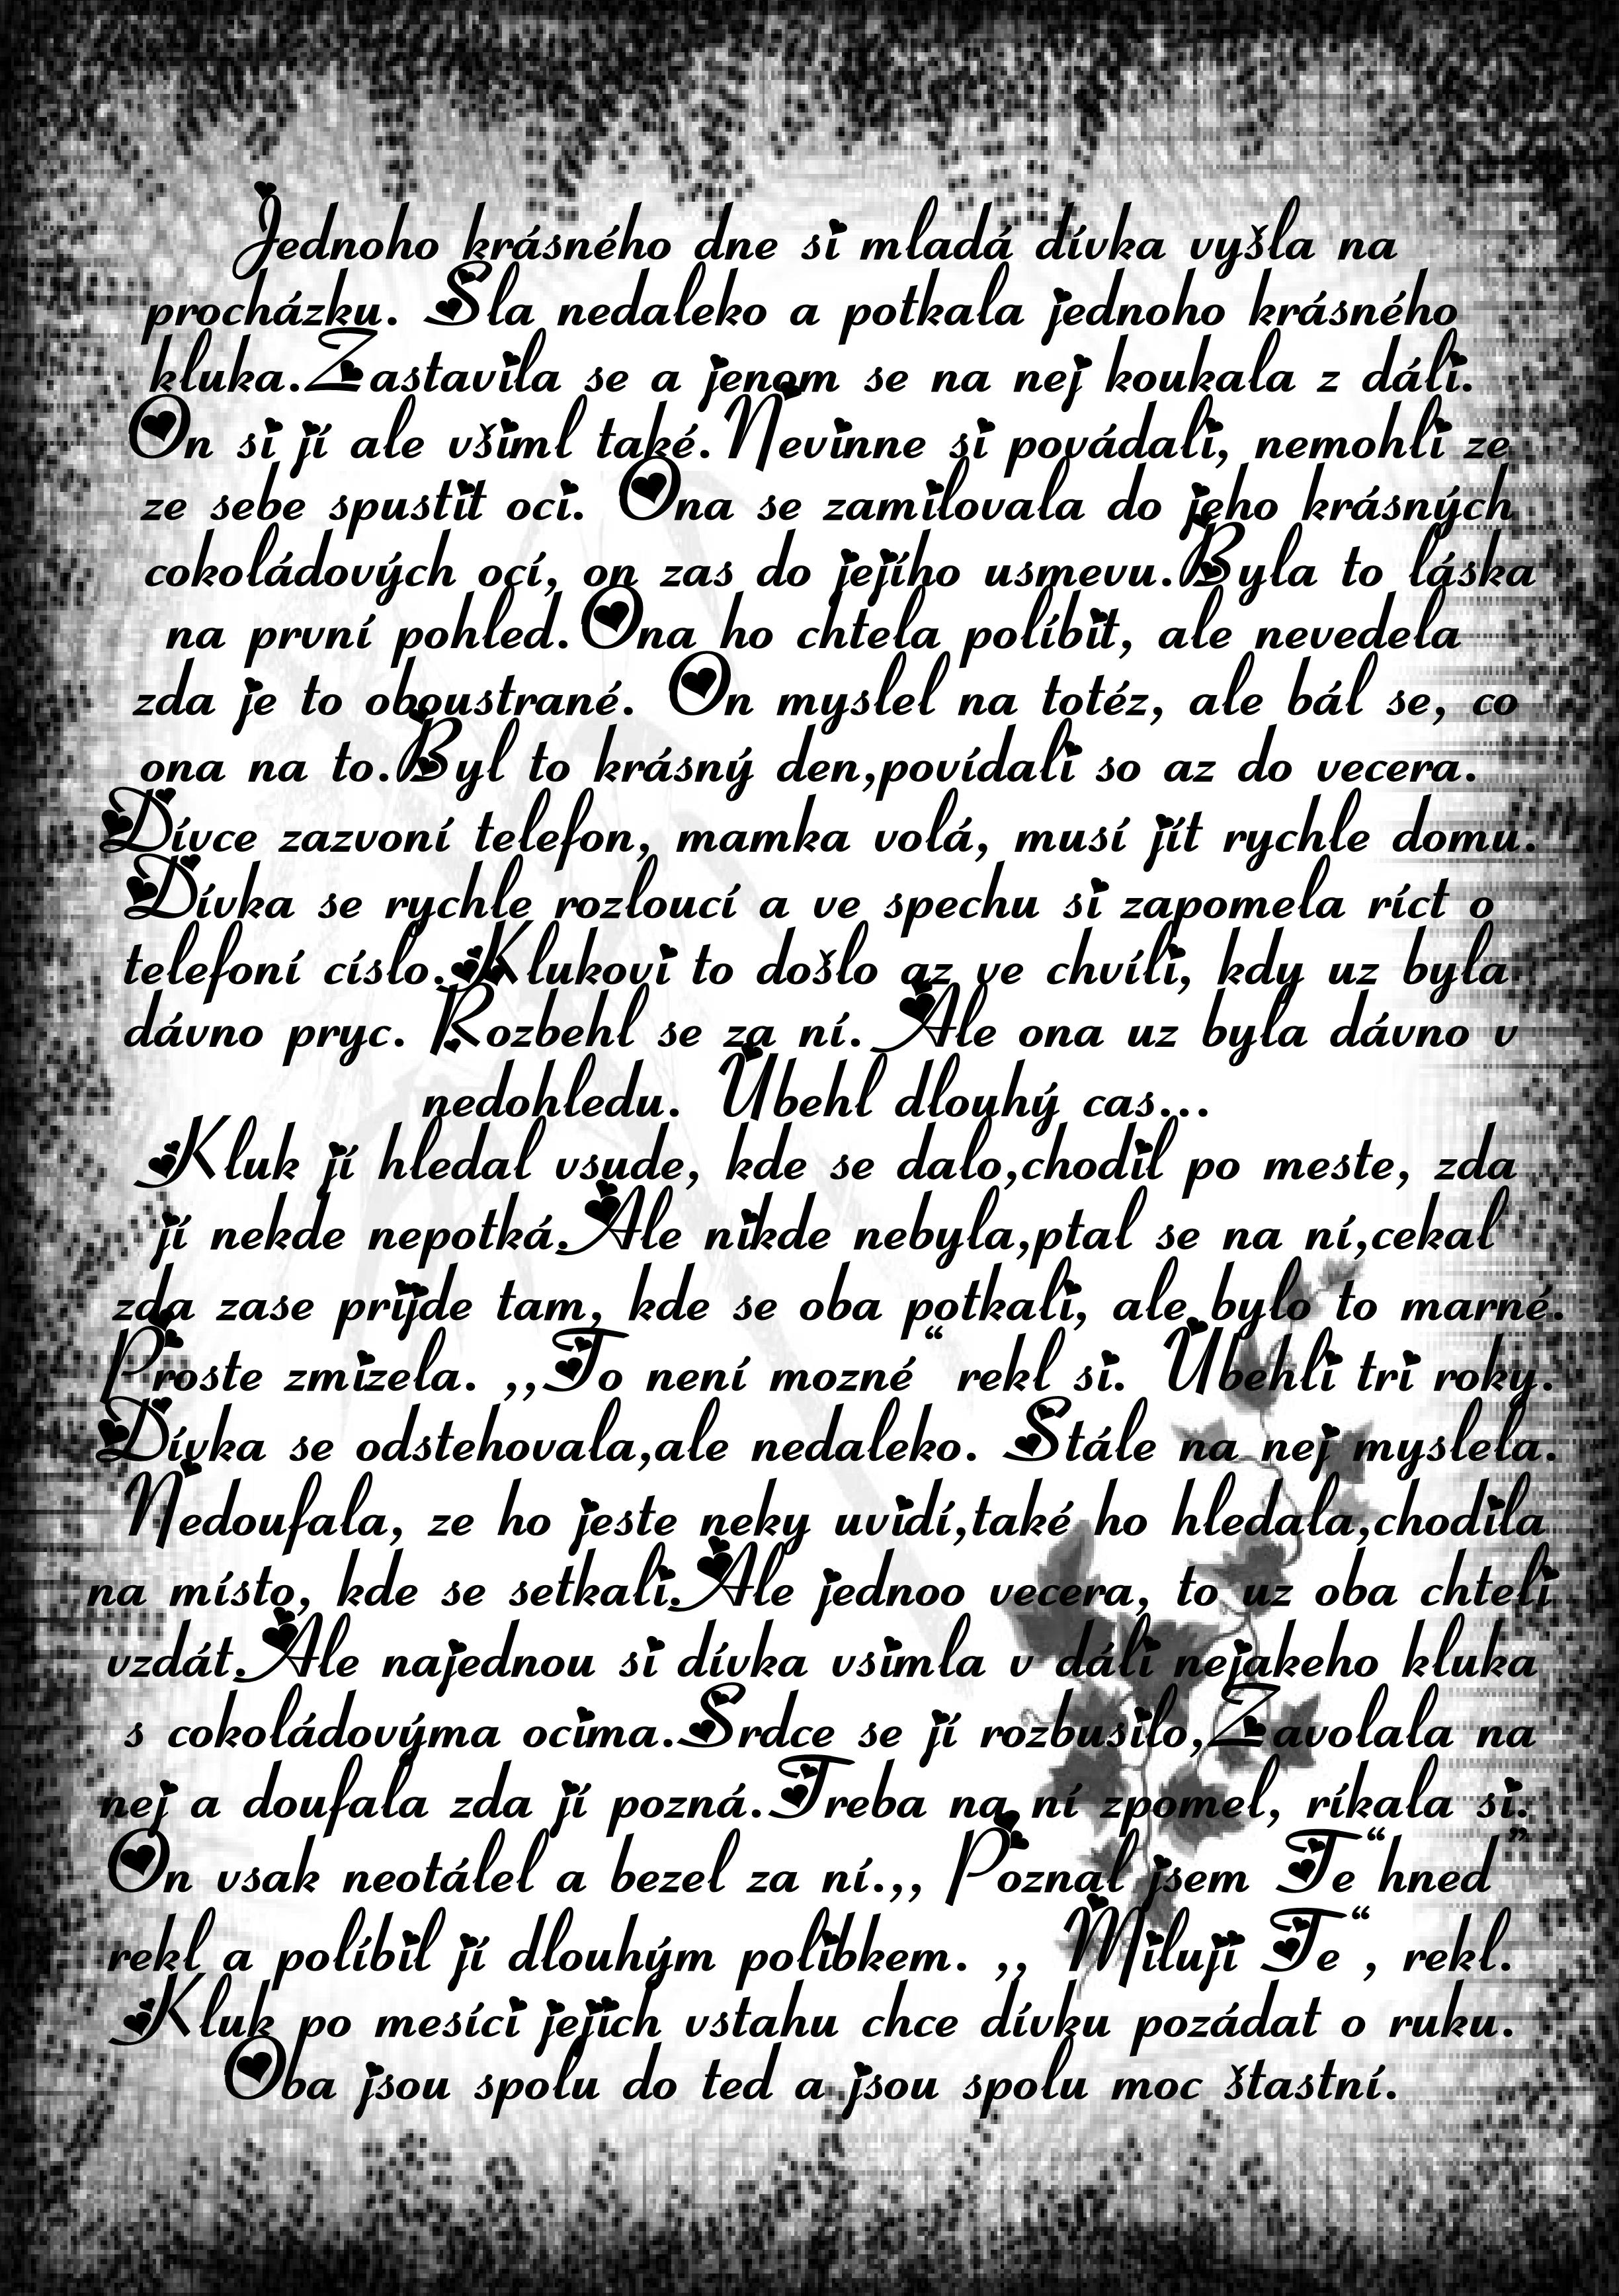 Jednoho krásného dne si mladá dívka vyšla na
procházku. Sla nedaleko a potkala jednoho krásného
kluka.Zastavila se a jenom se na nej koukala z dáli.
On si jí ale všiml také.Nevinne si povádali, nemohli ze
ze sebe spustit oci. Ona se zamilovala do jeho krásných
cokoládových ocí, on zas do jejího usmevu.Byla to láska
na první pohled.Ona ho chtela políbit, ale nevedela
zda je to oboustrané. On myslel na totéz, ale bál se, co
ona na to.Byl to krásný den,povídali so az do vecera.
Dívce zazvoní telefon, mamka volá, musí jít rychle domu.
Dívka se rychle rozloucí a ve spechu si zapomela ríct o
telefoní císlo.Klukovi to došlo az ve chvíli, kdy uz byla
dávno pryc. Rozbehl se za ní.Ale ona uz byla dávno v
nedohledu. Ubehl dlouhý cas...
Kluk jí hledal vsude, kde se dalo,chodil po meste, zda
jí nekde nepotká.Ale nikde nebyla,ptal se na ní,cekal
zda zase prijde tam, kde se oba potkali, ale bylo to marné.
Proste zmizela. ,,To není mozné“ rekl si. Ubehli tri roky.
Dívka se odstehovala,ale nedaleko. Stále na nej myslela.
Nedoufala, ze ho jeste neky uvidí,také ho hledala,chodila
na místo, kde se setkali.Ale jednoo vecera, to uz oba chteli
vzdát.Ale najednou si dívka vsimla v dáli nejakeho kluka
s cokoládovýma ocima.Srdce se jí rozbusilo,Zavolala na
nej a doufala zda jí pozná.Treba na ní zpomel, ríkala si.
On vsak neotálel a bezel za ní.,, Poznal jsem Te“hned”
rekl a políbil jí dlouhým polibkem. ,, Miluji Te“, rekl.
Kluk po mesíci jejich vstahu chce dívku pozádat o ruku.
Oba jsou spolu do ted a jsou spolu moc štastní.